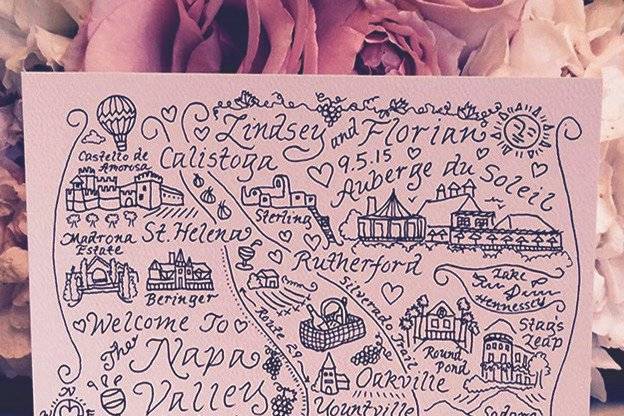 Lindsey and Florian
9.5.15
Castello de Amorosa
Calistoga
Auberge du Soleil
Sterling
Madrona
Estate
St. Helena
Rutherford
Beringer
Lake
Hennessey
Silverado Trail
Route 29
Stag's
Leap
Round
Pond
Welcome To
The Napa
Valley
Oakville
Yountville
N